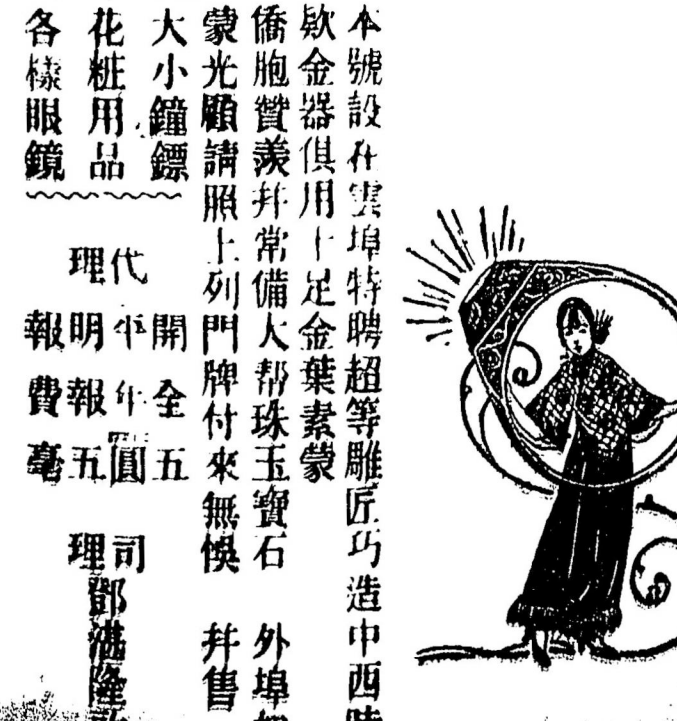 本號設在雲埠特聘超等雕匠巧造中西
欵金器俱用十足金葉素蒙
僑胞贊羨并常備大帮珠玉寶石 外埠
蒙光顧請照上列門牌付來無悞 并售
大小鐘鏢
花粧用品
各樣眼鏡
代理
開平明報
全年報費
五圓五毫
司理
鄧湛隆